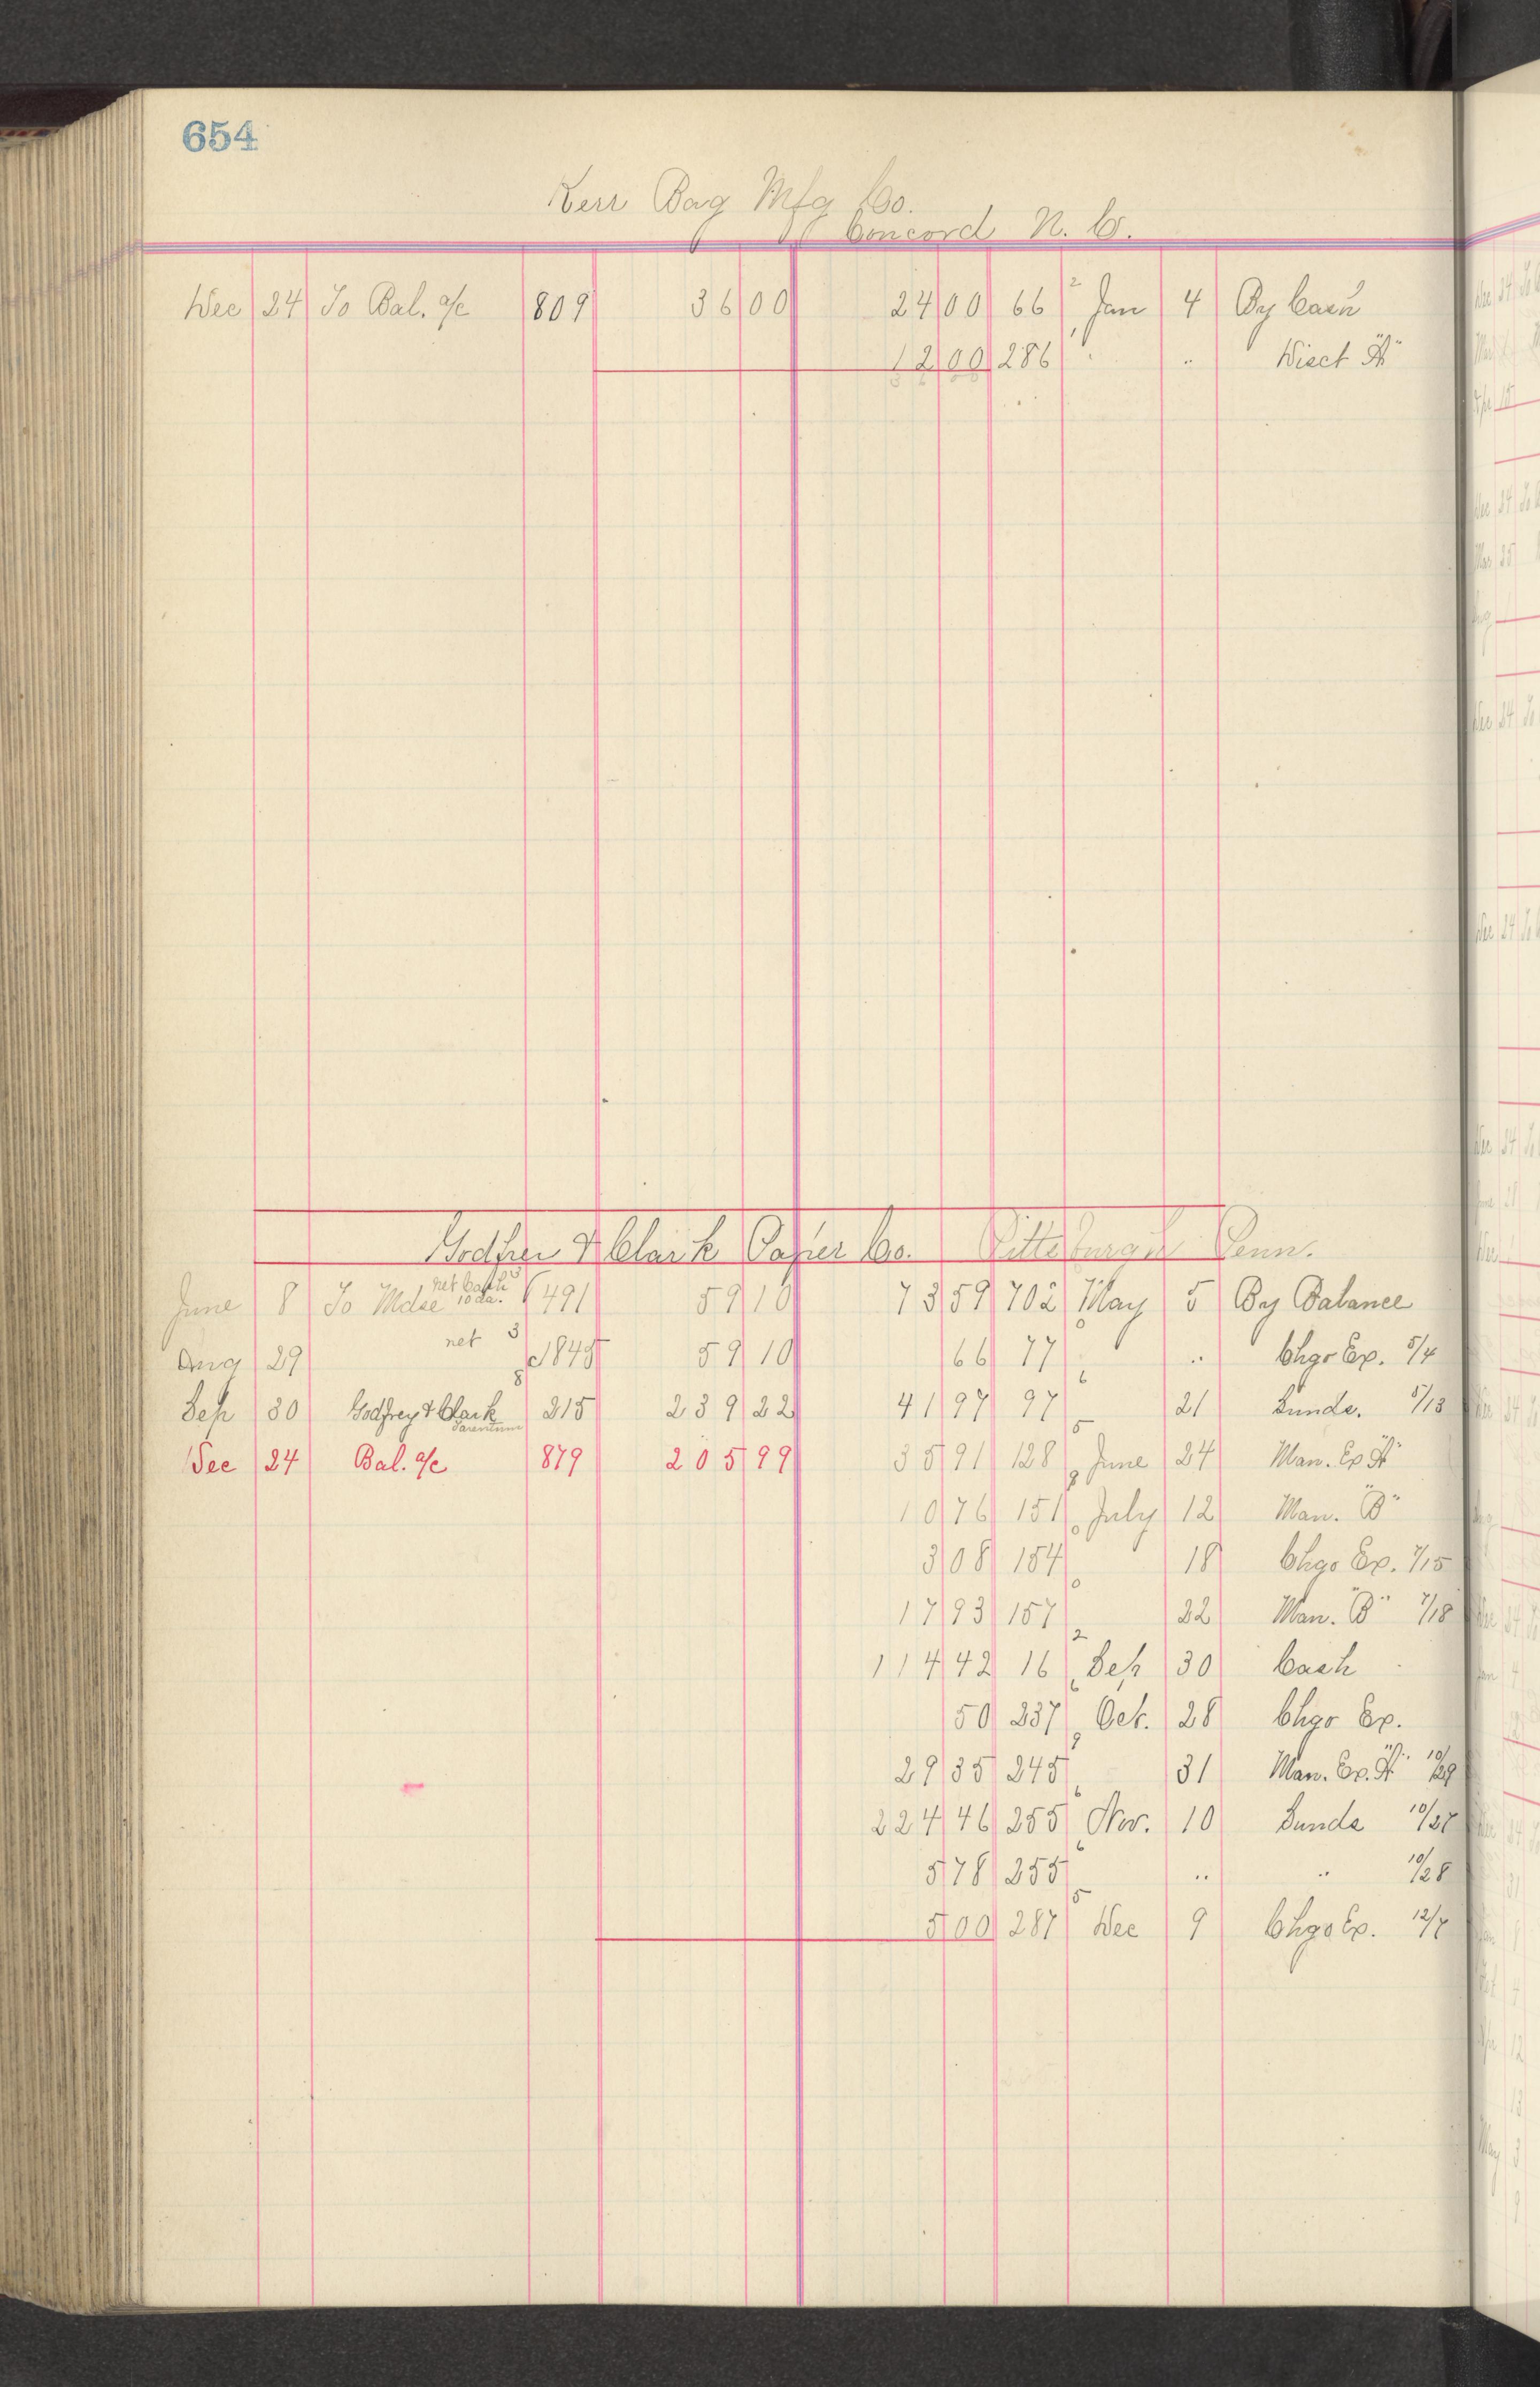 654
Kerr Bag Mfg Co.
Concord N. C.
Dec 24 To Bal. a/c 809 36 00 24 00 66 2 Jan 4 By Cash
12 00 286 " " Disct "A"
Godfrey & Clark Paper Co. Pittsburgh Penn.
June 8 To Mdse net cash 10 da. 491 59 10 73 59 702 May 5 By Balance
Aug 29 net 1848 59 10 66 77 " Chgo Ex. 5/4
Sep 30 Godfrey & Clark 215 239 22 41 97 97 21 Sunds. 5/13
Dec 24 Bal. a/c 879 205 99 35 91 128 June 24 Man. Ex "A"
10 76 151 July 12 Man. "B"
3 08 154 18 Chgo Ex. 7/15
17 93 157 22 Man. "B" 7/18
114 42 16 Sep 30 Cash
50 237 Oct. 28 Chgo Ex.
29 35 245 31 Man. Ex. "A" 10/29
224 46 255 Nov. 10 Sunds 10/27
5 78 255 " " 10/28
5 00 287 Dec 9 Chgo Ex. 12/7